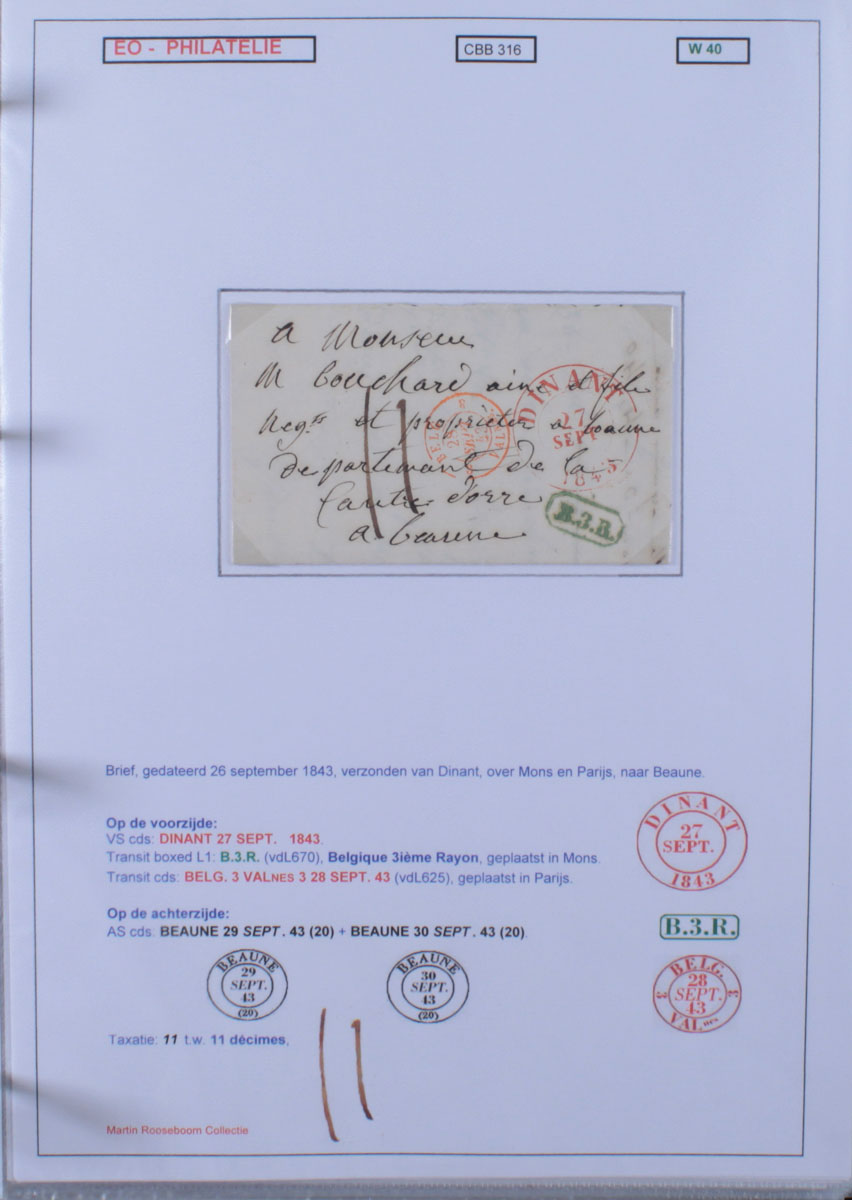 EO - PHILATELIE
CBB 316
W 40
a Monsieur
M bouchard ainé et fils
Negts et proprieter a beaune
departement de la
Cautte dorre
a beaune
DINANT
27
SEPT
1843
B.3.R.
Brief, gedateerd 26 september 1843, verzonden van Dinant, over Mons en Parijs, naar Beaune.
Op de voorzijde:
VS cds: DINANT 27 SEPT. 1843.
Transit boxed L1: B.3.R. (vdL670), Belgique 3ième Rayon, geplaatst in Mons.
Transit cds: BELG. 3 VALNES 3 28 SEPT. 43 (vdL625), geplaatst in Parijs.
DINANT
27
SEPT.
1843
Op de achterzijde:
AS cds. BEAUNE 29 SEPT. 43 (20) + BEAUNE 30 SEPT. 43 (20).
B.3.R.
BEAUNE
29
SEPT.
43
(20)
BEAUNE
30
SEPT.
43
(20)
BELG.
28
3 SEPT. 3
43
VALnes
Taxatie: 11 t.w. 11 décimes,
11
Martin Rooseboom Collectie